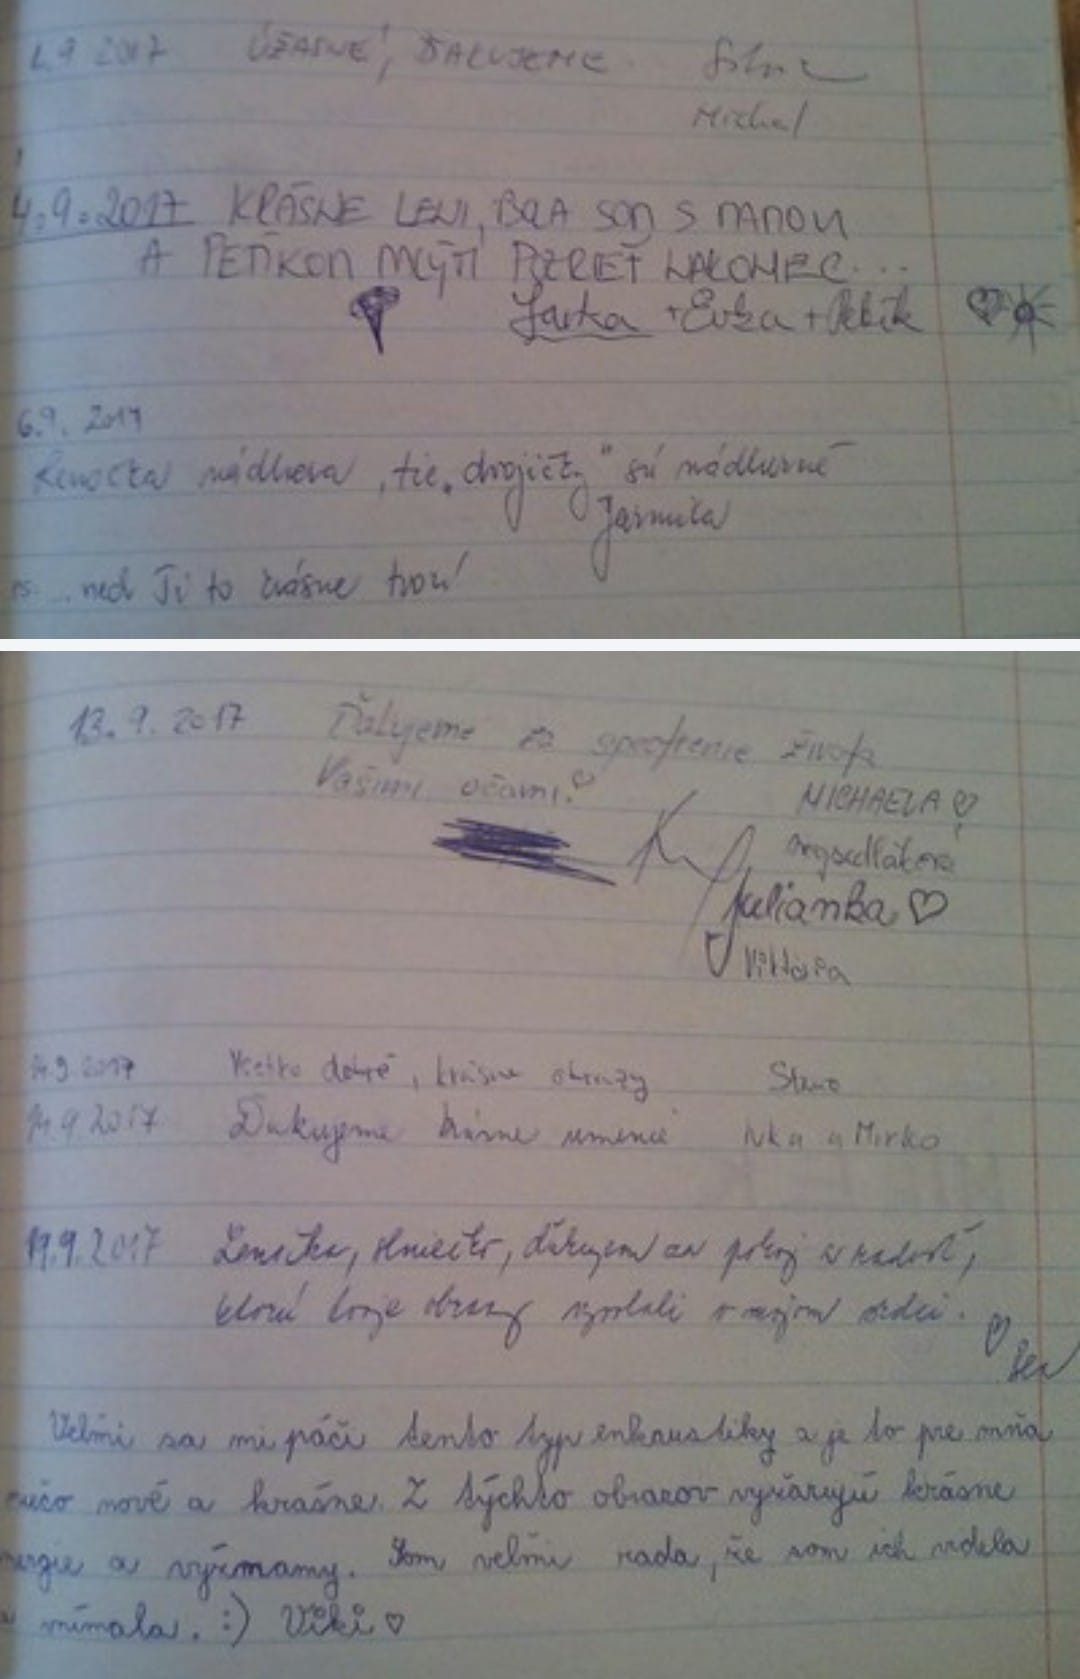 1.9 2017 ÚŽASNÉ, ĎAKUJEME
Michal
4.9.2017 KRÁSNE LENI, BOLA SOM S MAMOU
A PEŤKOM POZRIEŤ
Jarka + Evka +
6.9. 2017
Lenočka nádhera, tie „dvojičky" sú nádherné
Jarmila
PS. ... nech Ti to krásne tvorí
13.9.2017 Ďakujeme za spestrenie života
Vašimi očami.♡
MICHAELA ♡
Julianka ♡
Viktória
14.9.2017 Všetko dobré, krásne obrazy Stano
14.9.2017 Ďakujeme krásne umenie Ivka a Mirko
19.9.2017 Lenočka, slniečko, ďakujem za pokoj a radosť,
ktorú tvoje obrazy vyvolali v mojom srdci. ♡
Veľmi sa mi páči tento typ enkaustiky a je to pre mňa
niečo nové a krásne. Z týchto obrazov vyžarujú krásne
energie a významy. Som veľmi rada, že som ich videla
a vnímala. :) Viki ♡